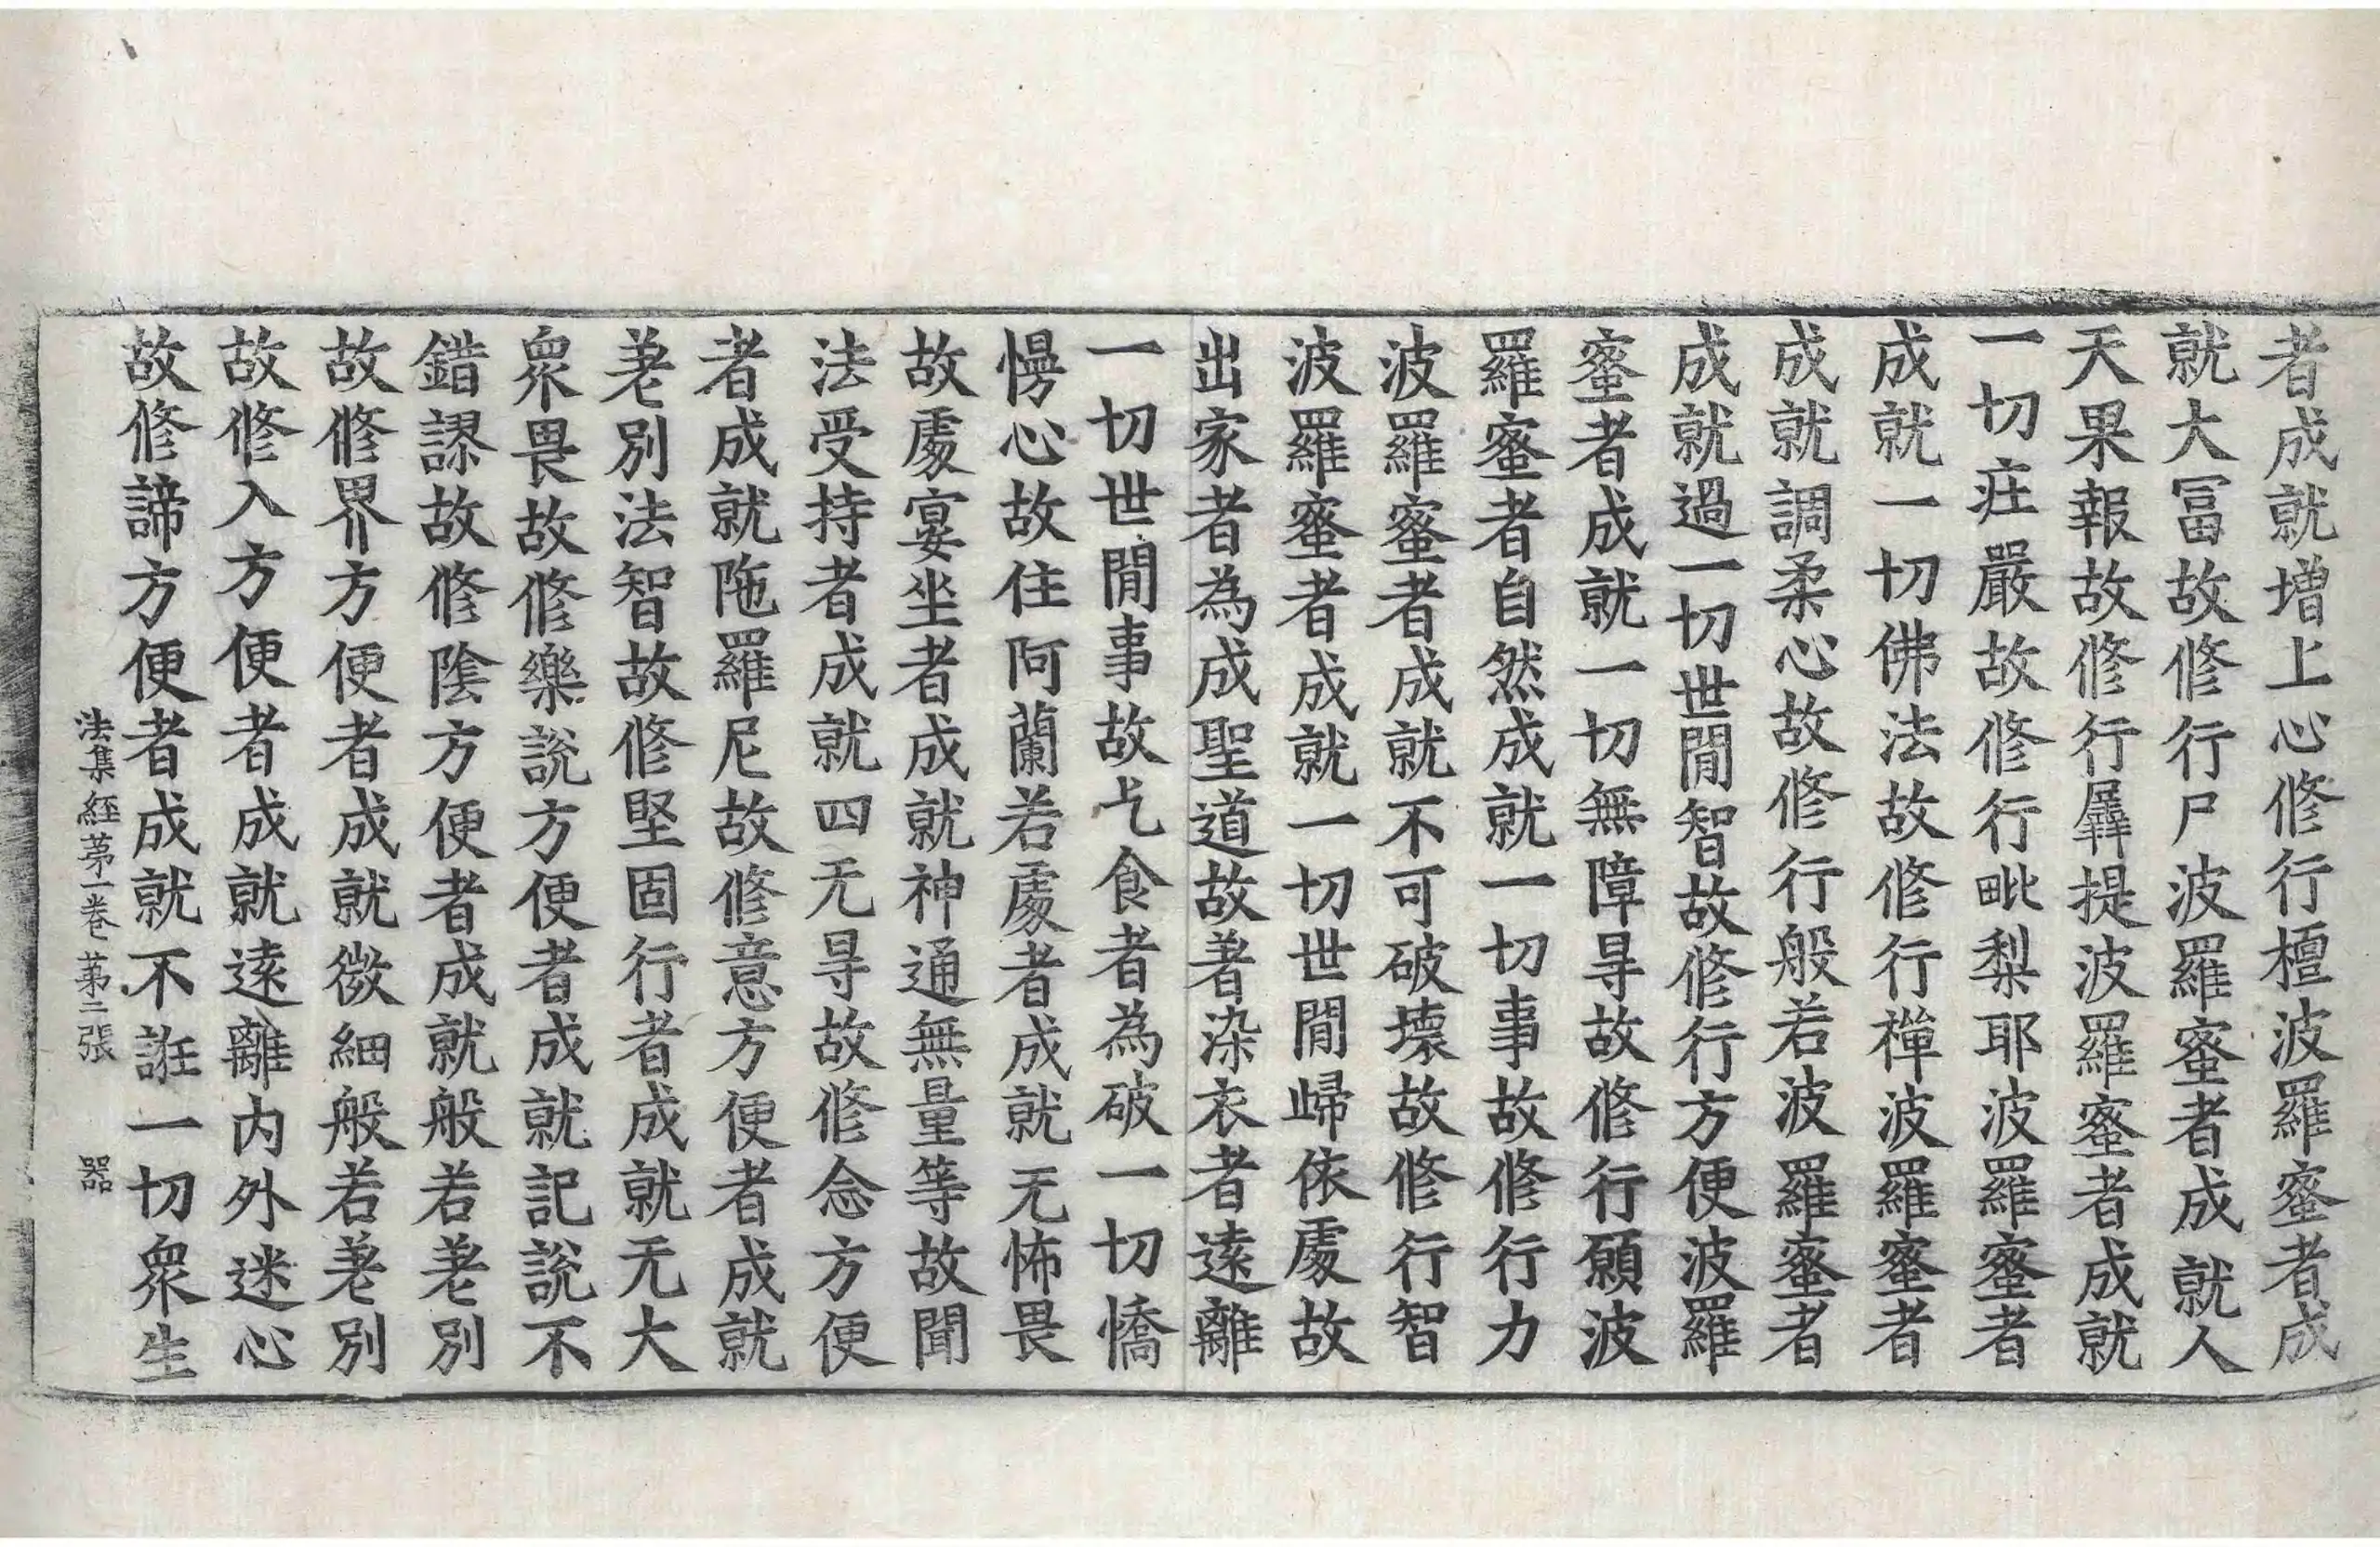 者成就增上心修行檀波羅蜜者成
就大冨故修行尸波羅蜜者成就人
天果報故修行羼提波羅蜜者成就
一切庄嚴故修行毗梨耶波羅蜜者
成就一切佛法故修行禪波羅蜜者
成就調柔心故修行般若波羅蜜者
成就過一切世閒智故修行方便波羅
蜜者成就一切無障㝵故修行願波
羅蜜者自然成就一切事故修行力
波羅蜜者成就不可破壞故修行智
波羅蜜者成就一切世閒歸依處故
出家者為成聖道故著染衣者遠離
一切世閒事故乞食者為破一切憍
慢心故住阿蘭若處者成就无怖畏
故處宴坐者成就神通無量等故聞
法受持者成就四无㝵故修念方便
者成就陁羅尼故修意方便者成就
差別法智故修堅固行者成就无大
衆畏故修樂說方便者成就記說不
錯謬故修陰方便者成就般若差別
故修界方便者成就微細般若差別
故修入方便者成就遠離内外迷心
故修諦方便者成就不誑一切衆生
法集經苐一卷 苐二張 器